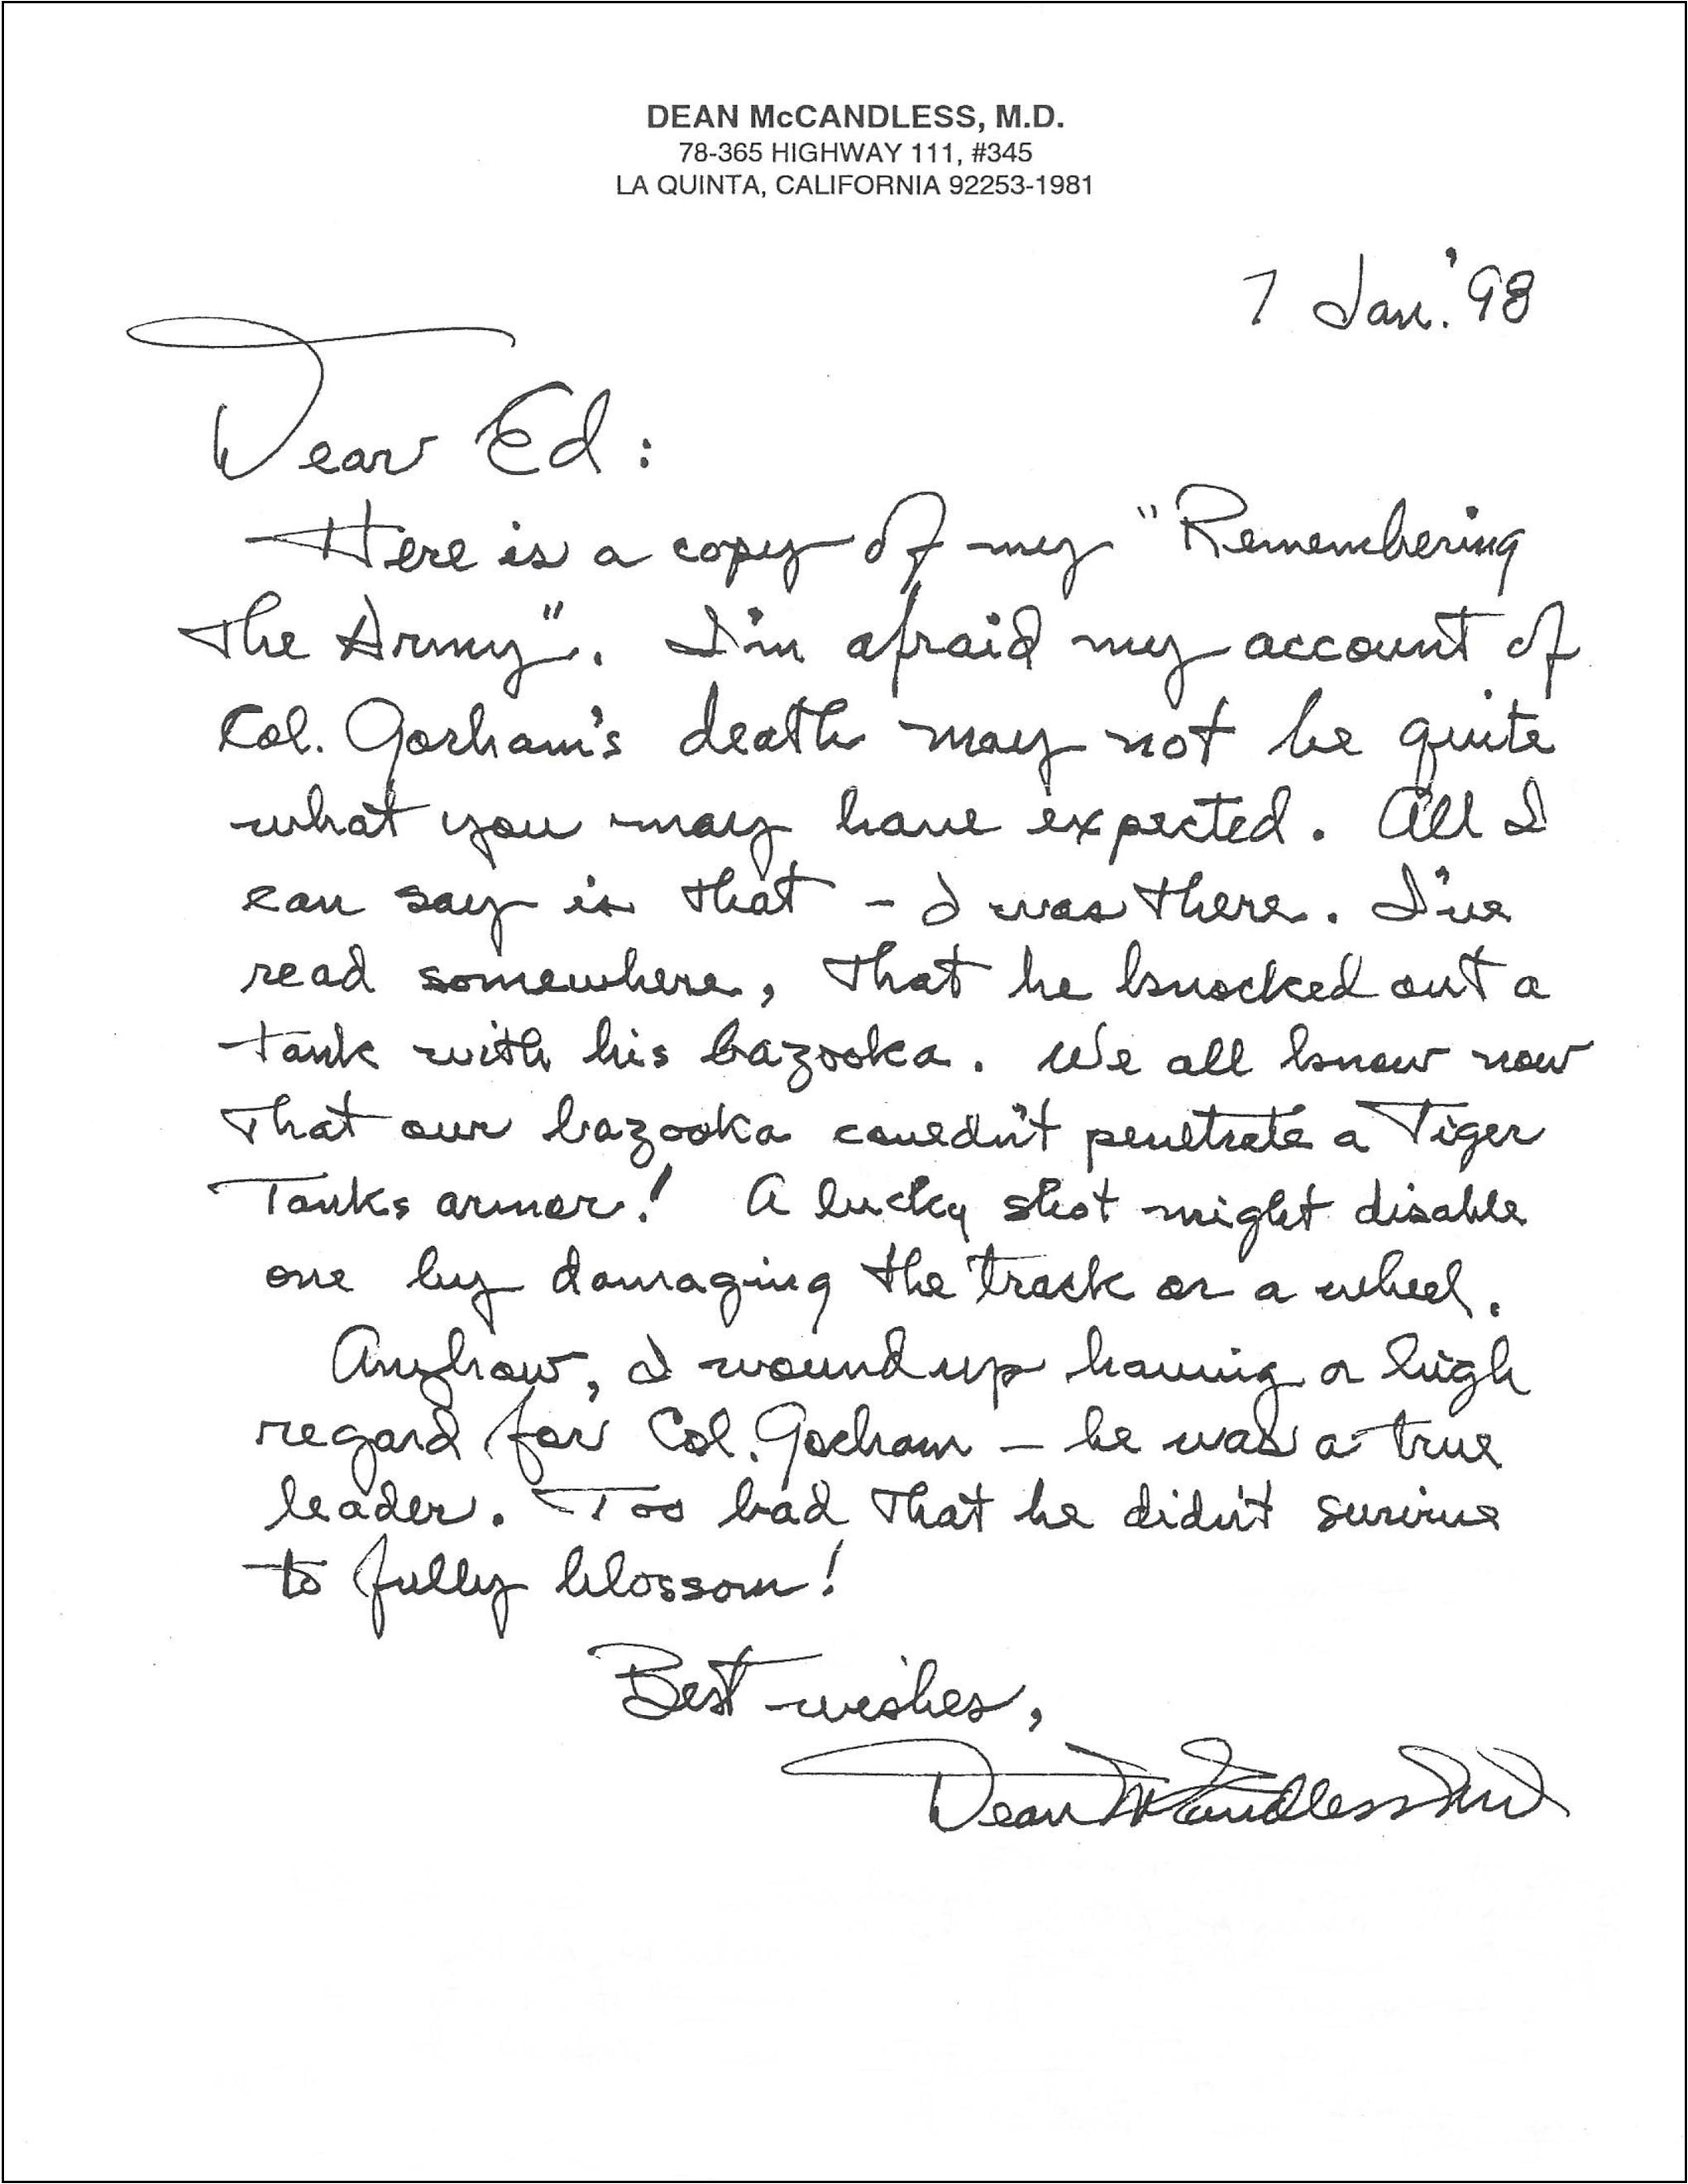 DEAN McCANDLESS, M.D.
78-365 HIGHWAY 111, #345
LA QUINTA, CALIFORNIA 92253-1981
7 Jan. '98
Dear Ed:
Here is a copy of my "Remembering
The Army". I'm afraid my account of
Col. Gorham's death may not be quite
what you may have expected. All I
can say is that - I was there. I've
read somewhere, that he knocked out a
tank with his bazooka. We all know now
that our bazooka couldn't penetrate a Tiger
Tanks armor! A lucky shot might disable
one by damaging the track or a wheel.
Anyhow, I wound up having a high
regard for Col. Gorham - he was a true
leader. Too bad that he didn't survive
to fully blossom!
Best wishes,
Dean McCandless MD